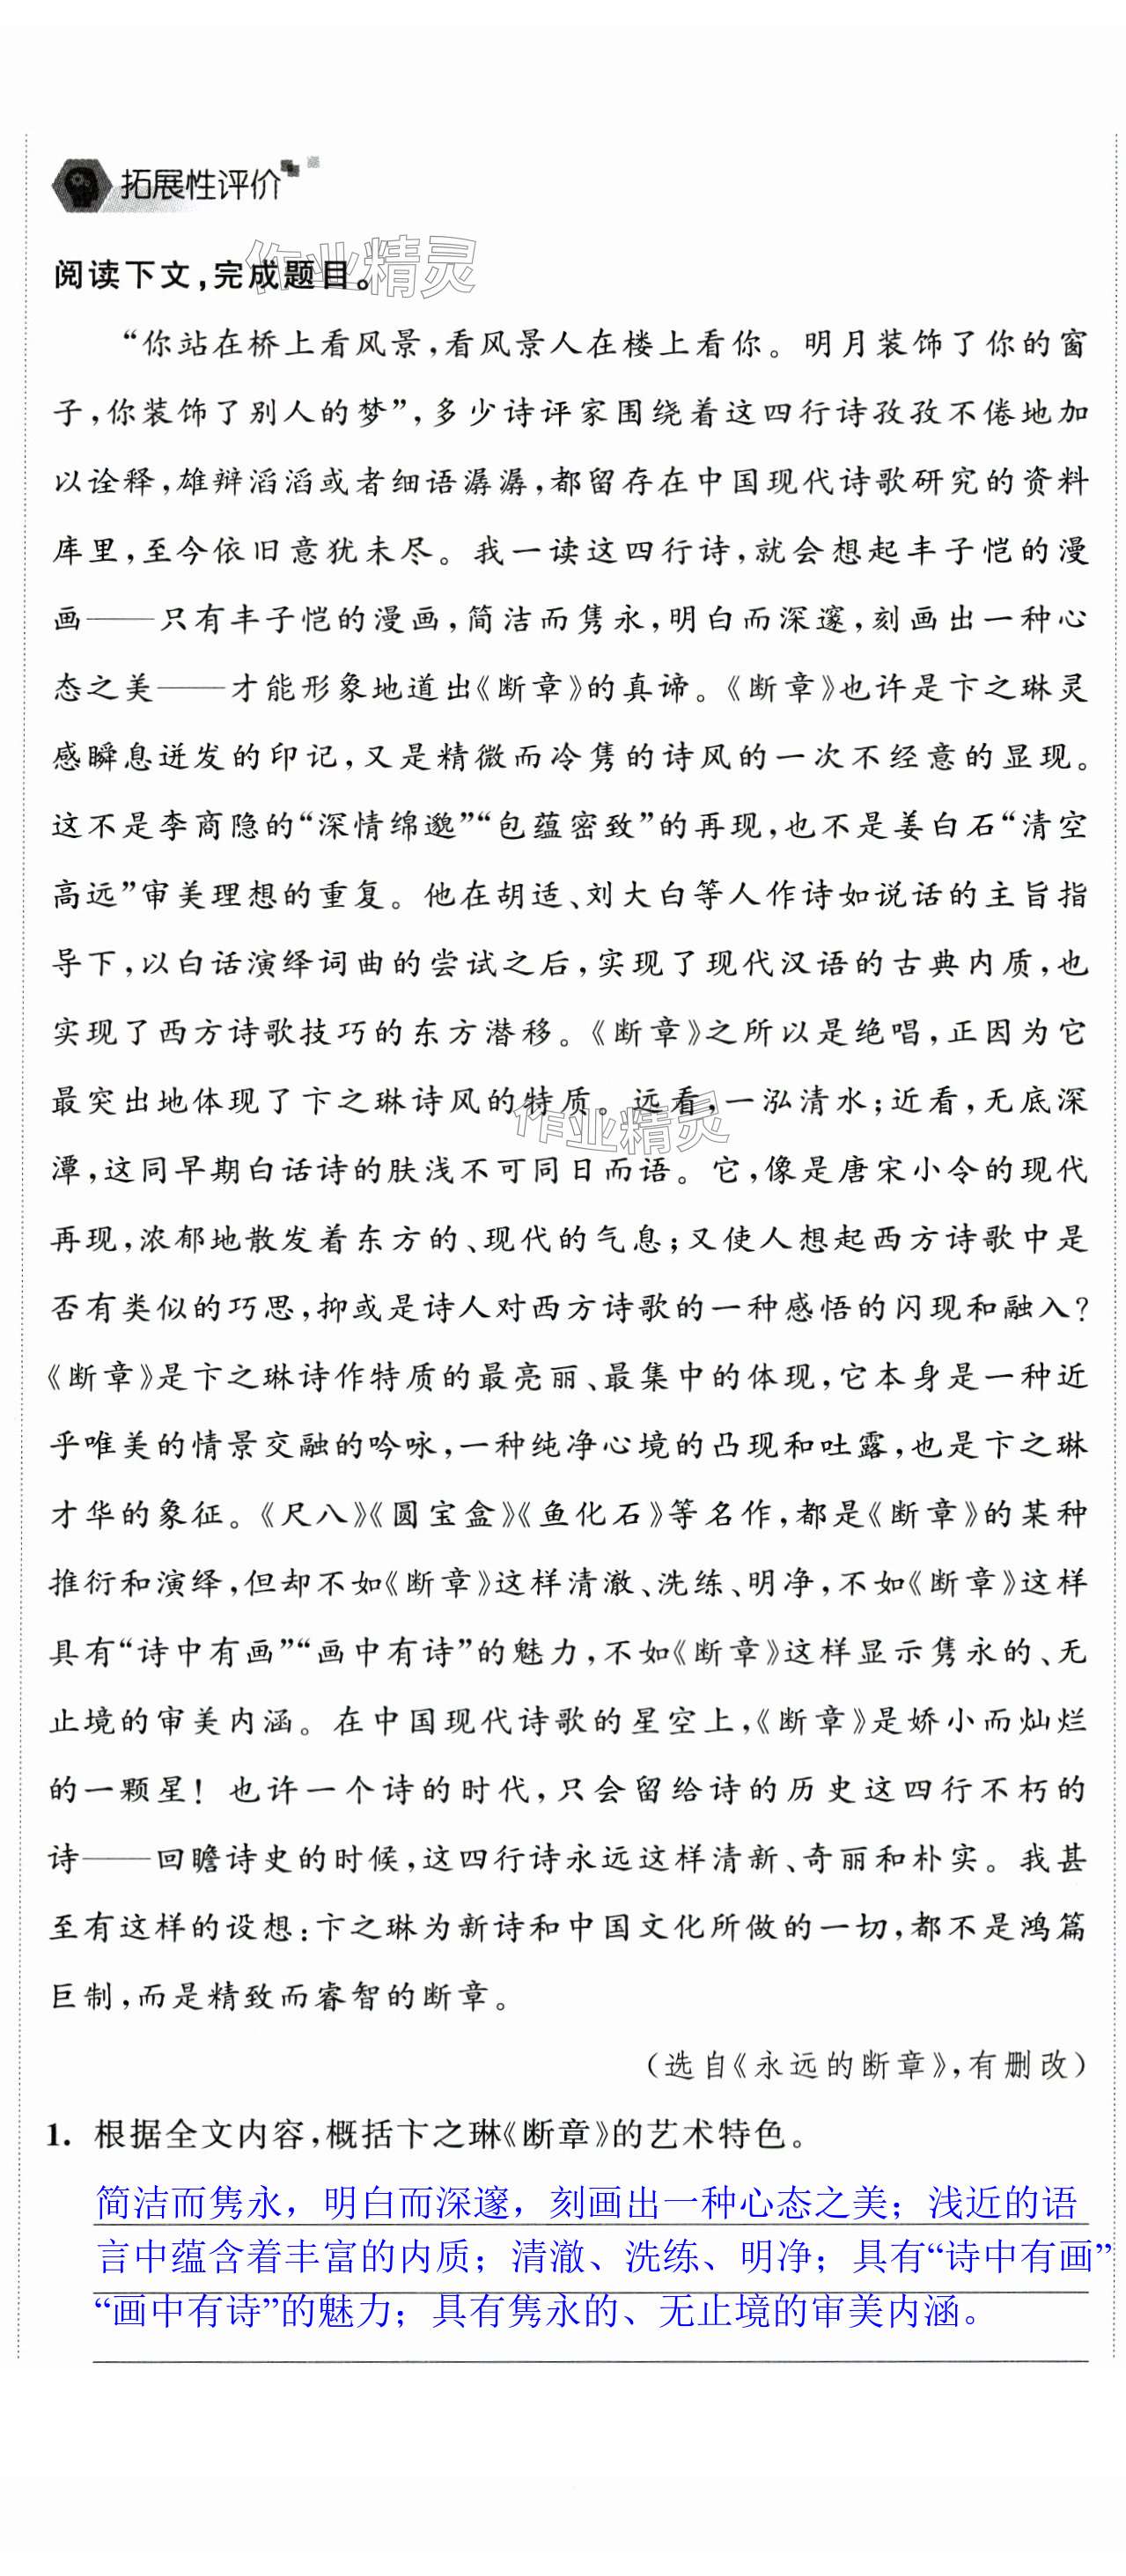 拓展性评价
阅读下文,完成题目。
“你站在桥上看风景,看风景人在楼上看你。明月装饰了你的窗
子,你装饰了别人的梦”,多少诗评家围绕着这四行诗孜孜不倦地加
以诠释,雄辩滔滔或者细语潺潺,都留存在中国现代诗歌研究的资料
库里,至今依旧意犹未尽。我一读这四行诗,就会想起丰子恺的漫
画——只有丰子恺的漫画,简洁而隽永,明白而深邃,刻画出一种心
态之美——才能形象地道出《断章》的真谛。《断章》也许是卞之琳灵
感瞬息迸发的印记,又是精微而冷隽的诗风的一次不经意的显现。
这不是李商隐的“深情绵邈”“包蕴密致”的再现,也不是姜白石“清空
高远”审美理想的重复。他在胡适、刘大白等人作诗如说话的主旨指
导下,以白话演绎词曲的尝试之后,实现了现代汉语的古典内质,也
实现了西方诗歌技巧的东方潜移。《断章》之所以是绝唱,正因为它
最突出地体现了卞之琳诗风的特质。远看,一泓清水;近看,无底深
潭,这同早期白话诗的肤浅不可同日而语。它,像是唐宋小令的现代
再现,浓郁地散发着东方的、现代的气息;又使人想起西方诗歌中是
否有类似的巧思,抑或是诗人对西方诗歌的一种感悟的闪现和融入?
《断章》是卞之琳诗作特质的最亮丽、最集中的体现,它本身是一种近
乎唯美的情景交融的吟咏,一种纯净心境的凸现和吐露,也是卞之琳
才华的象征。《尺八》《圆宝盒》《鱼化石》等名作,都是《断章》的某种
推衍和演绎,但却不如《断章》这样清澈、洗练、明净,不如《断章》这样
具有“诗中有画”“画中有诗”的魅力,不如《断章》这样显示隽永的、无
止境的审美内涵。在中国现代诗歌的星空上,《断章》是娇小而灿烂
的一颗星!也许一个诗的时代,只会留给诗的历史这四行不朽的
诗——回瞻诗史的时候,这四行诗永远这样清新、奇丽和朴实。我甚
至有这样的设想:卞之琳为新诗和中国文化所做的一切,都不是鸿篇
巨制,而是精致而睿智的断章。
(选自《永远的断章》,有删改)
1. 根据全文内容,概括卞之琳《断章》的艺术特色。
简洁而隽永，明白而深邃，刻画出一种心态之美；浅近的语
言中蕴含着丰富的内质；清澈、洗练、明净；具有“诗中有画”
“画中有诗”的魅力；具有隽永的、无止境的审美内涵。
作业精灵
作业精灵